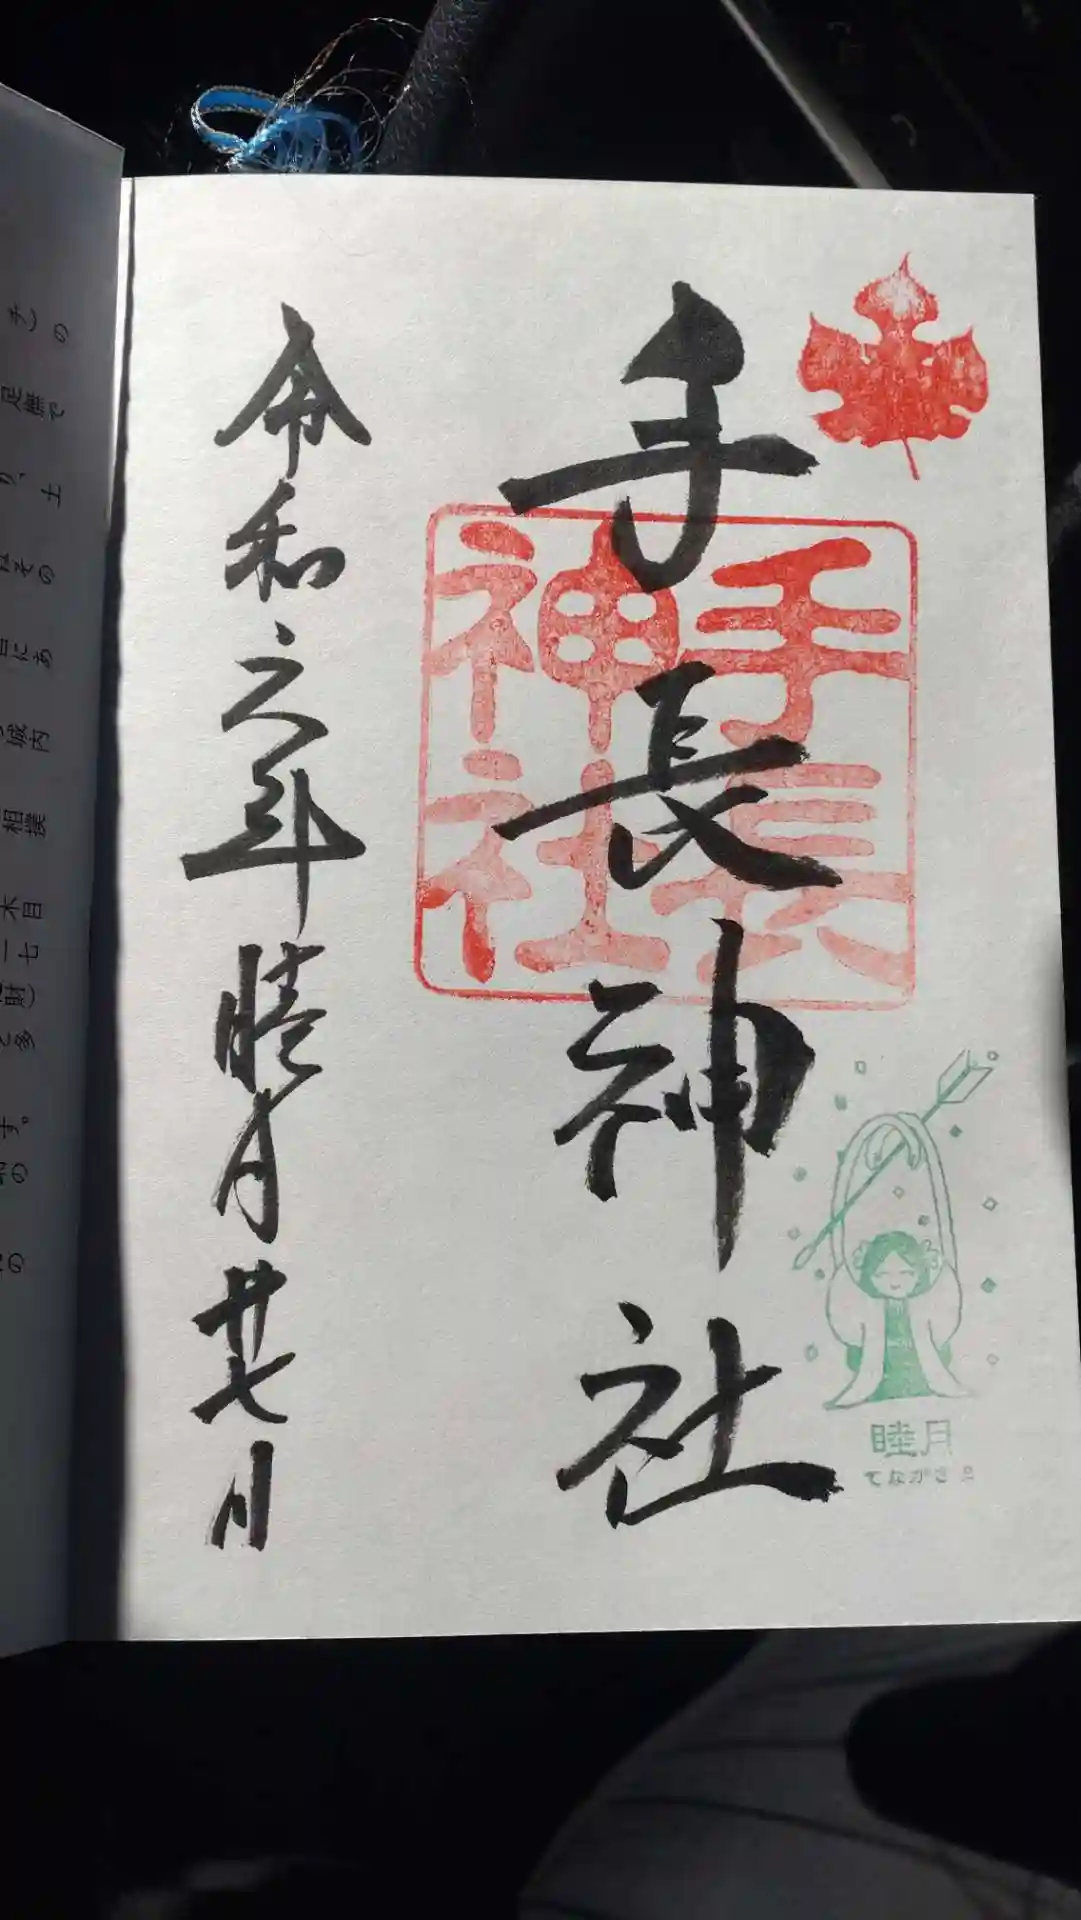 手長神社
手長
神社
睦月
てながさま
令和六年睦月廿七日